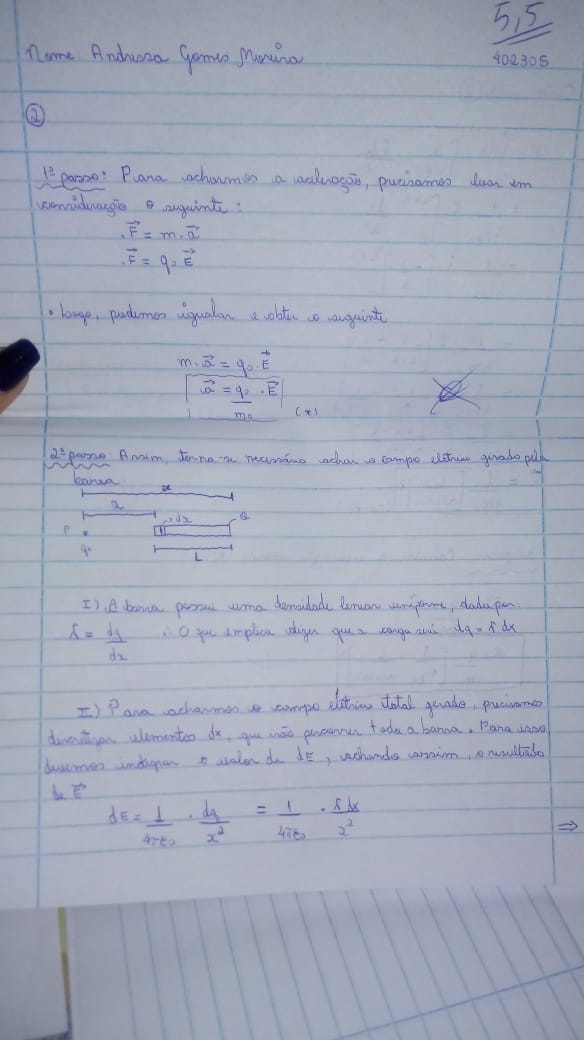 5,5
Nome: Andressa Gomes Moreira
402305
②
1º passo: Para acharmos a aceleração, precisamos levar em
consideração o seguinte:
.F⃗ = m.a⃗
.F⃗ = q₀ E⃗
• Logo, podemos igualar e obter o seguinte
m.a⃗ = q₀.E⃗
a⃗ = q₀/m₀ . E⃗ (*)
2º passo Assim, torna-se necessário achar o campo elétrico gerado pela
barra
x
a
dx
Q
P
q₀
L
I) A barra possui uma densidade linear uniforme, dada por:
λ = dq/dx ∴ O que implica dizer que a carga será dq = λ dx
II) Para acharmos o campo elétrico total gerado, precisamos
elementos dx, que irão percorrer toda a barra. Para isso
devemos integrar o valor de dE, achando assim, o resultado
de E⃗
dE = 1/4πε₀ . dq/x² = 1/4πε₀ . λdx/x²
⇒